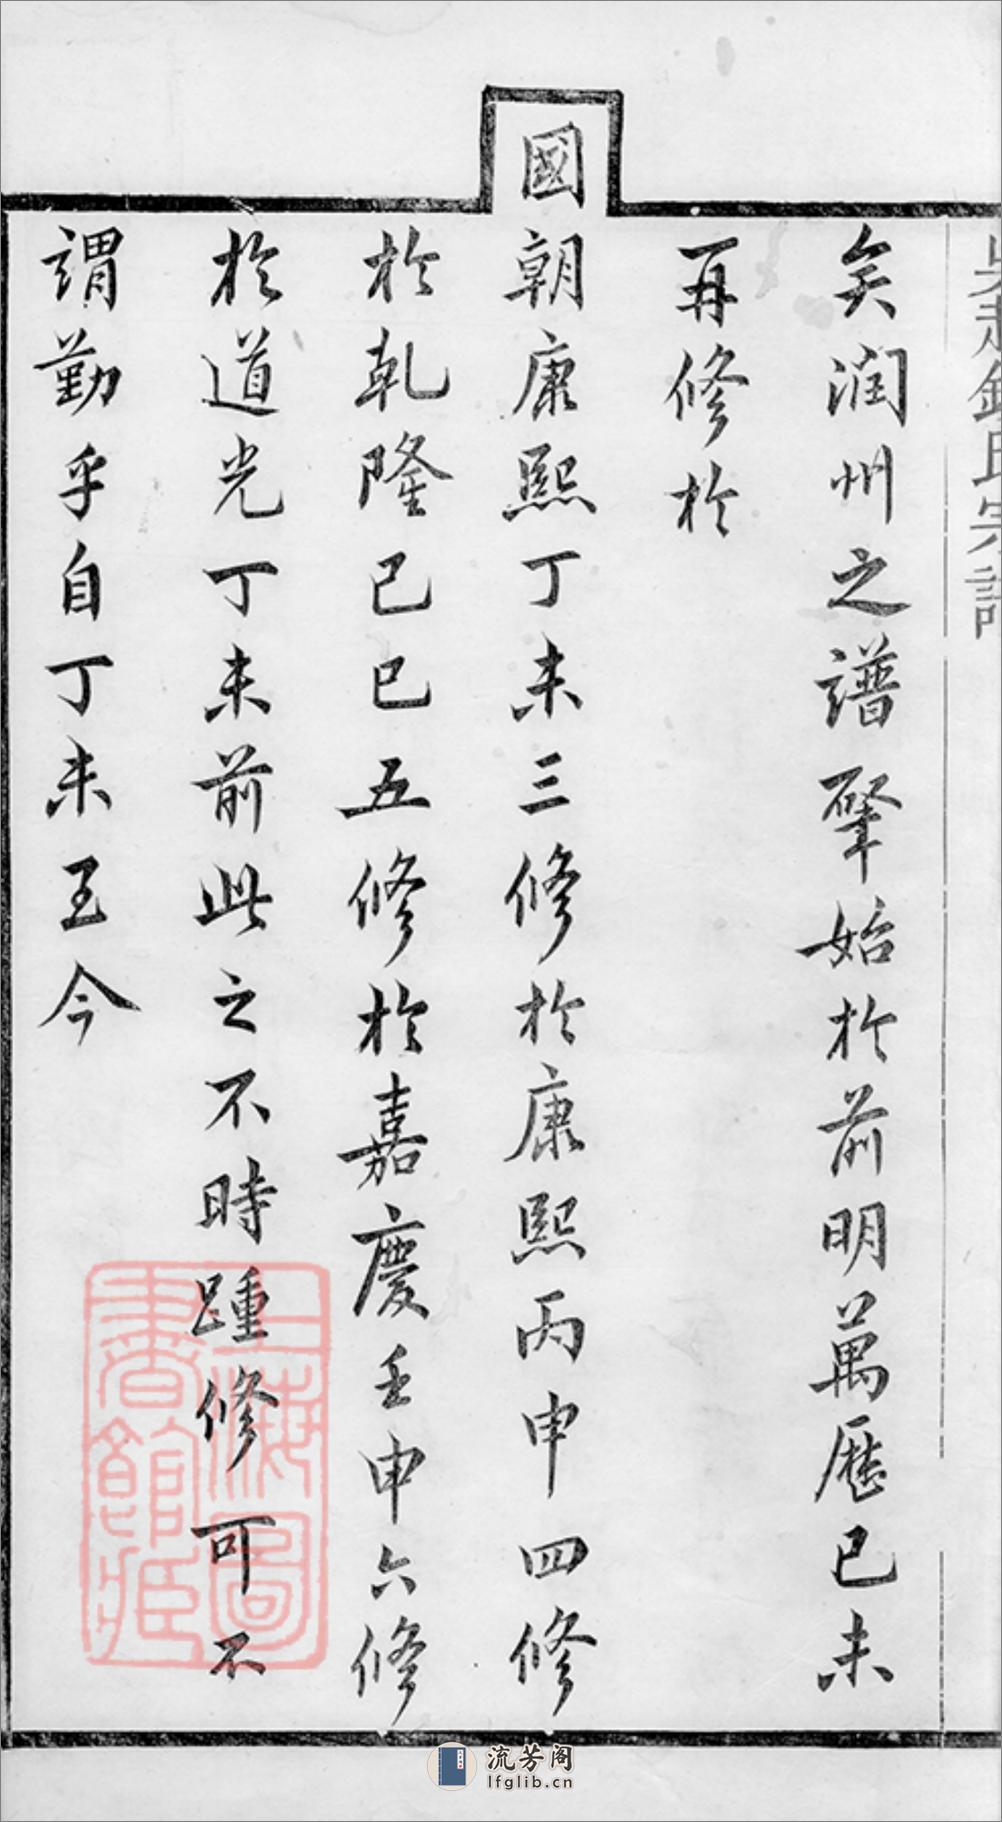 吳越錢氏宗譜
矣潤州之譜肈始於前明萬歴己未
再修於
國朝康熙丁未三修於康熙丙申四修
於乾隆己巳五修於嘉慶壬申六修
於道光丁未前此之不時踵修可不
謂勤乎自丁未至今
上海圖書館藏
流芳阁
lfglib.cn